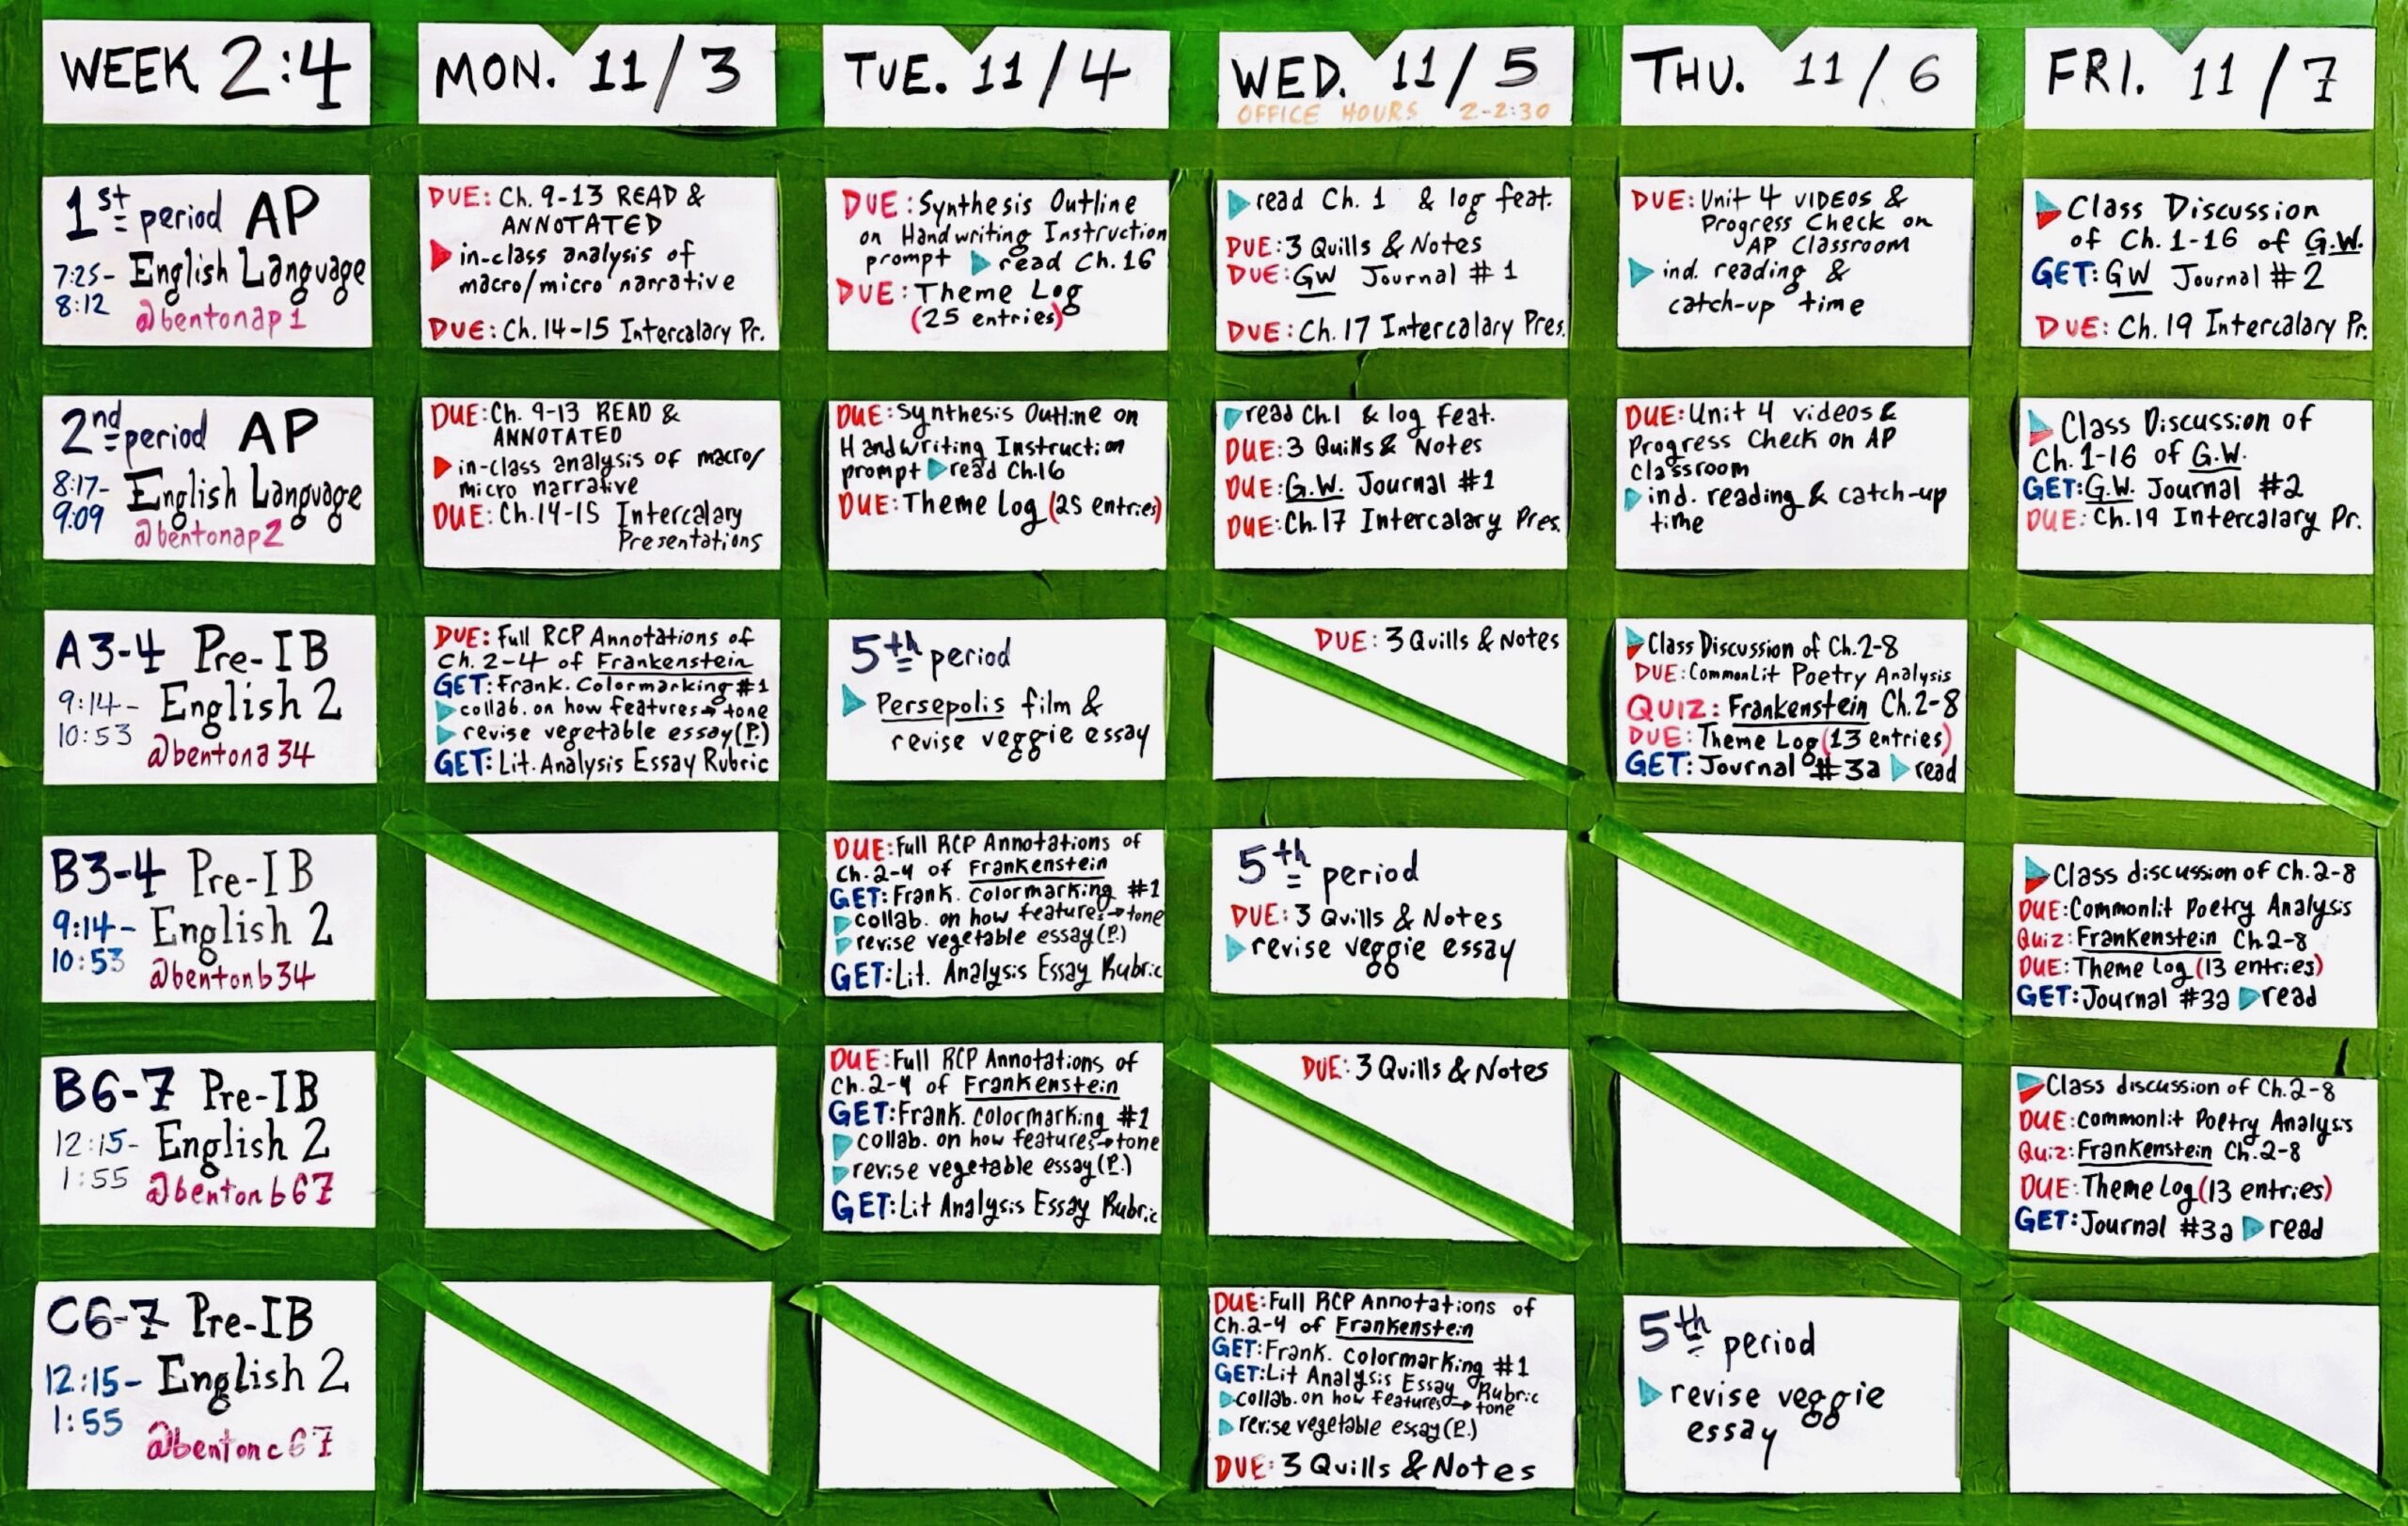 WEEK 2:4
MON. 11/3
TUE. 11/4
WED. 11/5
OFFICE HOURS 2-2:30
THU. 11/6
FRI. 11/7
1st period AP
7:25- English Language
8:12 @bentonap1
DUE: Ch. 9-13 READ &
ANNOTATED
in-class analysis of
macro/micro narrative
DUE: Ch. 14-15 Intercalary Pr.
DUE: Synthesis Outline
on Handwriting Instruction
prompt read Ch. 16
DUE: Theme Log
(25 entries)
read Ch. 1 & log feat.
DUE: 3 Quills & Notes
DUE: GW Journal #1
DUE: Ch. 17 Intercalary Pres.
DUE: Unit 4 VIDEOS &
Progress Check on
AP Classroom
ind. reading &
catch-up time
Class Discussion
of Ch. 1-16 of G.W.
GET: GW Journal #2
DUE: Ch. 19 Intercalary Pr.
2nd period AP
8:17- English Language
9:09 @bentonap2
DUE: Ch. 9-13 READ &
ANNOTATED
in-class analysis of macro/
micro narrative
DUE: Ch. 14-15 Intercalary
Presentations
DUE: Synthesis Outline on
Handwriting Instruction
prompt read Ch.16
DUE: Theme Log (25 entries)
read Ch.1 & log feat.
DUE: 3 Quills & Notes
DUE: G.W. Journal #1
DUE: Ch. 17 Intercalary Pres.
DUE: Unit 4 videos &
Progress Check on AP
Classroom
ind. reading & catch-up
time
Class Discussion of
Ch. 1-16 of G.W.
GET: G.W. Journal #2
DUE: Ch. 19 Intercalary Pr.
A3-4 Pre-IB
9:14- English 2
10:53 @bentona34
DUE: Full RCP Annotations of
Ch. 2-4 of Frankenstein
GET: Frank. Colormarking #1
collab. on how features→tone
revise vegetable essay (P.)
GET: Lit. Analysis Essay Rubric
5th period
Persepolis film &
revise veggie essay
DUE: 3 Quills & Notes
Class Discussion of Ch. 2-8
DUE: CommonLit Poetry Analysis
QUIZ: Frankenstein Ch. 2-8
DUE: Theme Log (13 entries)
GET: Journal #3a read
B3-4 Pre-IB
9:14- English 2
10:53 @bentonb34
DUE: Full RCP Annotations of
Ch. 2-4 of Frankenstein
GET: Frank. Colormarking #1
collab. on how features→tone
revise vegetable essay (P.)
GET: Lit. Analysis Essay Rubric
5th period
DUE: 3 Quills & Notes
revise veggie essay
Class discussion of Ch. 2-8
DUE: Commonlit Poetry Analysis
Quiz: Frankenstein Ch. 2-8
DUE: Theme Log (13 entries)
GET: Journal #3a read
B6-7 Pre-IB
12:15- English 2
1:55 @bentonb67
DUE: Full RCP Annotations of
Ch. 2-4 of Frankenstein
GET: Frank. Colormarking #1
collab. on how features→tone
revise vegetable essay (P.)
GET: Lit Analysis Essay Rubric
DUE: 3 Quills & Notes
Class discussion of Ch. 2-8
DUE: commonlit Poetry Analysis
Quiz: Frankenstein Ch. 2-8
DUE: Theme Log (13 entries)
GET: Journal #3a read
C6-7 Pre-IB
12:15- English 2
1:55 @bentonc67
DUE: Full RCP Annotations of
Ch. 2-4 of Frankenstein
GET: Frank. Colormarking #1
GET: Lit Analysis Essay Rubric
collab. on how features→tone
revise vegetable essay (P.)
DUE: 3 Quills & Notes
5th period
revise veggie
essay